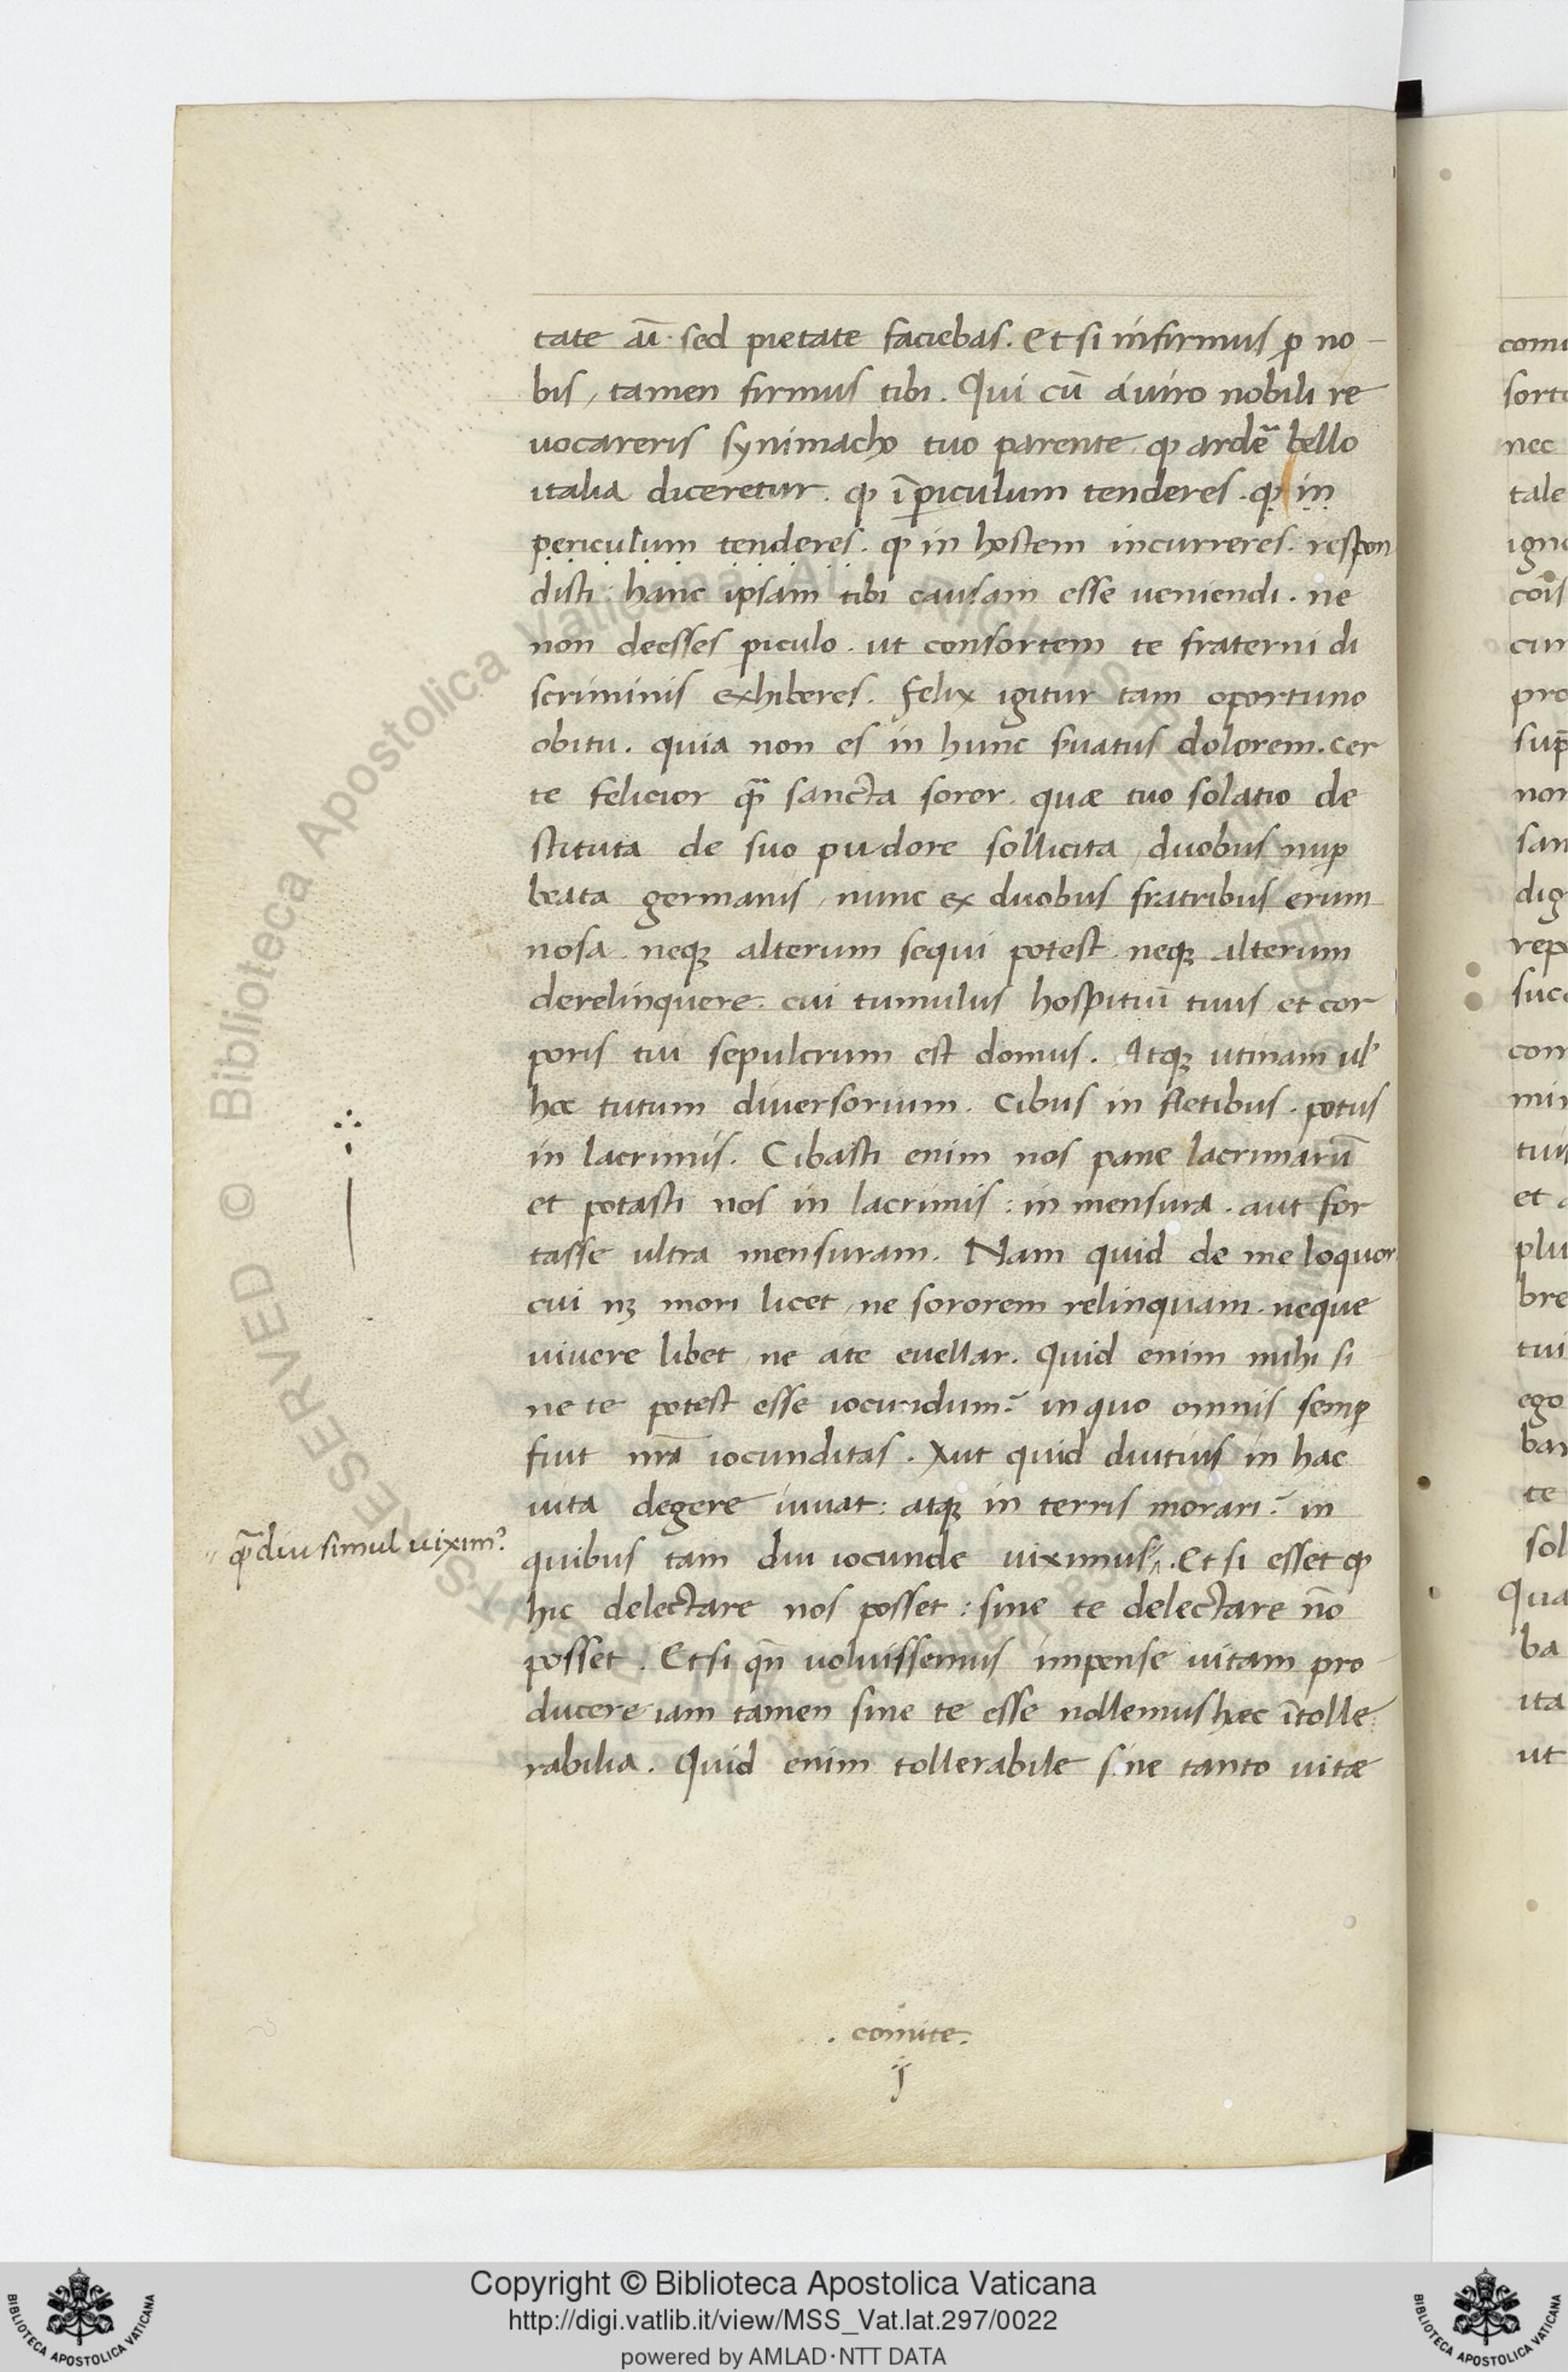 tate aū. sed pietate faciebas. Et si infirmus ꝓ no-
bis, tamen firmus tibi. Qui cū a uiro nobili re
uocareris synimacho tuo parente ꝙ ardē bello
italia diceretur. ꝙ ī ꝑiculum tenderes. ꝙ in
periculum tenderes. ꝙ in hostem incurreres. respon
disti: hanc ipsam tibi causam esse ueniendi. ne
non deesses ꝑiculo. ut consortem te fraterni di
scriminis exhiberes. felix igitur tam oportuno
obitu. quia non es in hunc ẜuatus dolorem. cer
te felicior ꝙ̄ sancta soror. quæ tuo solatio de
stituta de suo pudore sollicita, duobus nuꝑ
beata germanis, nunc ex duobus fratribus erum
nosa. neqꝫ alterum sequi potest. neqꝫ alterum
derelinquere. cui tumulus hospitiū tuus, et cor
poris tui sepulcrum est domus. Atqꝫ utinam ul'
hoc tutum diuersorium. Cibus in fletibus. potus
in lacrimis. Cibasti enim nos pane lacrimarū
et potasti nos in lacrimis: in mensura. aut for
tasse ultra mensuram. Nam quid de me loquor
cui nꝫ mori licet, ne sororem relinquam. neque
uiuere libet, ne a te euellar. Quid enim mihi si
ne te potest esse iocundum? in quo omnis semꝑ
fuit nr̄a iocunditas. Aut quid diutius in hac
uita degere iuuat: atqꝫ in terris morari? in
quibus tam diu iocunde uiximus. Et si esset ꝙ
hic delectare nos posset: sine te delectare nō
posset. Et si qn̄ uoluissemus impense uitam pro-
ducere iam tamen sine te esse nollemus hæc ītolle
rabilia. Quid enim tollerabile sine tanto uitæ
ꝙ̄diu simul uiximꝰ
. comite.
comi
sort
nec
tale
igno
cōis
cun
pro
sup̄
non
san
dig
rep
succ
con
min
tuis
et a
plu
bre
tui
ego
bar
te
sol
Qua
ba
ita
ut
© Biblioteca Apostolica Vaticana ALL RIGHTS RESERVED
Copyright © Biblioteca Apostolica Vaticana
http://digi.vatlib.it/view/MSS_Vat.lat.297/0022
powered by AMLAD·NTT DATA
BIBLIOTECA APOSTOLICA VATICANA
BIBLIOTECA APOSTOLICA VATICANA